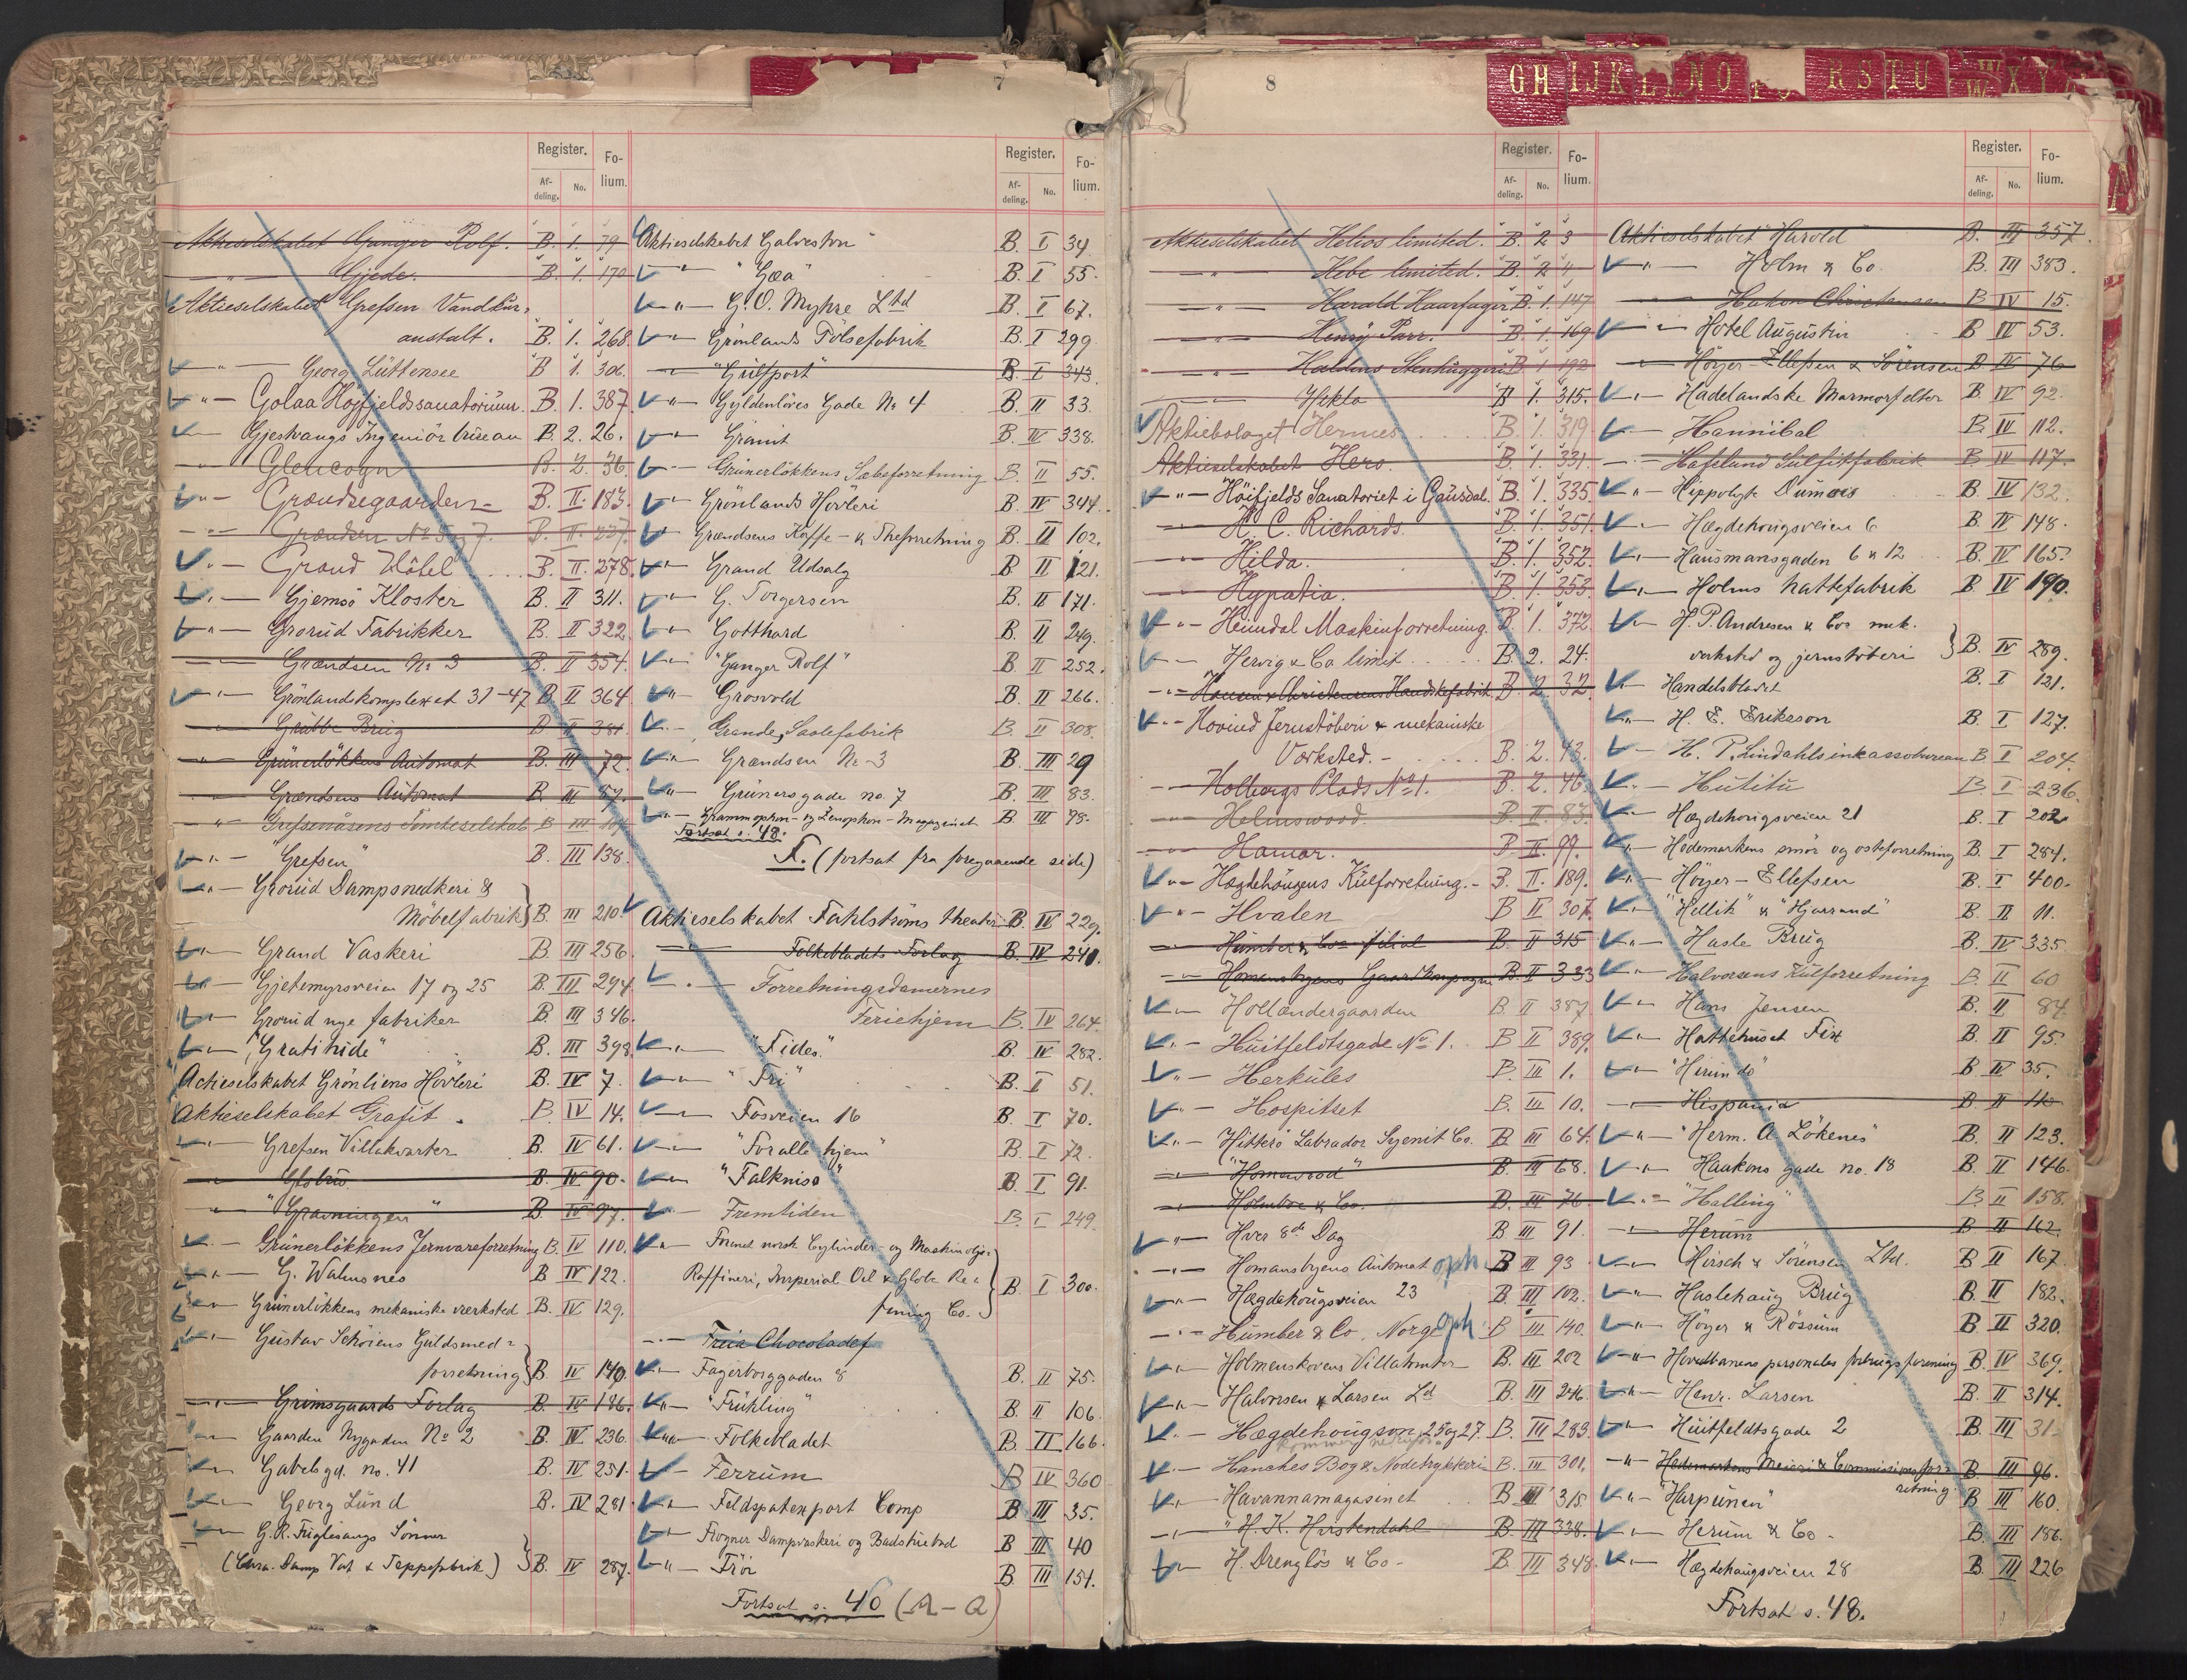 7
Register.
Fo-
lium.
Af-
deling.
No.
Aktieselskabet Ganger Rolf. B. 1. 79
— " — Gjede. B. 1. 170
Aktieselskabet Grefsen Vandkür-
anstalt. B. 1. 268
— " — Georg Lüttensee B 1. 306.
— " — Golaa Høifjeldssanatorium. B. 1. 387
— Gjestvangs Ingeniörbüreau B. 2. 26.
— " — Glencogn B. 2. 36
— " — Grændsegaarden B. II. 183.
— " — Grændsen No 5 og 7. B. II. 237.
— " — Grand Hôtel B. II. 278.
— " — Gjemsö Kloster B. II 311.
— " — Grorud Fabrikker B. II 322
— " — Grændsen No 3 B. II 354.
— " — Grönlandskomplexet 31-47 B. II 364
— " — Grübbe Brüg B II 384
— " — Grünerlökkens Automat B. III 72.
— " — Grændsens Automat B. III 87.
— " — Grefsenåsens Tomteselskab B III
— " — "Grefsen" B. III 138
— " — Grorud Dampsnedkeri &
Möbelfabrik B. III 210
— " — Grand Vaskeri B III 256
— " — Gjetemyrsveien 17 og 25 B. III 294
— " — Grorud nye fabriker B III 346.
— " — "Gratitude" B. III 398
Actieselskabet Grönliens Hövleri B. IV 7.
Aktieselskabet Grafit. B. IV 14.
— " — Grefsen Villakvarter B. IV 61.
— " — Glsbro B. IV 90.
— " — "Gravningen" B. IV 97.
— " — Grünerlökkens Jernvareforretning B. IV 110.
— " — G. Walmsnes B IV 122.
— " — Grünerlökkens mekaniske værksted B. IV 129.
— " — Gustav Schöiens Guldsmed-
forretning B. IV 140.
— " — Grimsgaards Forlag B. IV 186.
— " — Gaarden Nygaden No 2 B. IV 236
— " — Gabelsgd. no. 41 B. IV 251.
— " — Georg Lünd B. IV 281
— " — G. R. Füglesangs Sönner
(Chra. Damp Vat & Teppefabrik) B. IV 287.
Register.
Fo-
lium.
Af-
deling.
No.
Aktieselskabet Galveston B. I 34
— " — "Gæa" B. I 55.
— " — G. O. Myhre Ltd B. I 67.
— " — Grönlands Pölsefabrik B. I 299
— " — "Gulfport" B. I 343.
— " — Gyldenlöves Gade No 4 B. II 33.
— " — Granit B. IV 338.
— " — Grünerlökkens Sæbeforretning B II 55.
— " — Grönlands Hövleri B. IV 344.
— " — Grændsens Kaffe- & Theforretning B. II 102.
— " — Grand Udsalg B II 121.
— " — G. Torgersen B. II 171.
— " — Gotthard B. II 249.
— " — "Ganger Rolf" B II 252.
— " — Grosvold B. II 266.
— " — Grande, Saalefabrik B II 308
— " — Grændsen No 3 B. III 29
— " — Grünersgade no. 7 B. III 83.
— " — Grammophon- og Zonophon-Magazinet B. III 98.
Fortsat s. 48.
F. (fortsat fra foregaaende side)
Aktieselskabet Fahlströms theater B. IV 229.
— " — Folkebladets Forlag B. IV 240.
— " — Forretningsdamernes
Feriehjem B. IV 264.
— " — "Fides" B. IV 282.
— " — "Fri" B. I 51.
— " — Fosveien 16 B. I 70.
— " — "For alle hjem" B. I 72.
— " — "Falknise" B I 91.
— " — Fremtiden B. I 249.
— " — Forenet norsk Cylinder- og Maskinolje-
Raffineri, Imperial Oil & Globe Re-
fining Co. B. I 300.
— " — Freia Chocoladef
— " — Fagerborggaden 8 B. II 75.
— " — "Frühling" B. II 106
— " — Folkebladet B II 166.
— " — Ferrum B IV 360
— " — Feldspatexport Comp B III 35.
— " — Frogner Dampvaskeri og Badstuebad B III 40
— " — Fröi B III 151.
Fortsat s. 46 (A-Q)
8
Register.
Fo-
lium.
Af-
deling.
No.
Aktieselskabet Helios limited. B. 2 3
— " — Hebe limited. B. 2 4
— " — Harald Haarfager B. 1. 147
— " — Henry Parr. B. 1. 169
— " — Haldens Stenhuggeri B 1 192
— " — Hekla B 1. 315.
Aktiebolaget Hermes B. 1. 319
Aktieselskabet Hero. B. 1. 331
— " — Höifjelds Sanatoriet i Gausdal. B. 1. 335
— " — H. C. Richards. B. 1. 351
— " — Hilda. B. 1. 352.
— " — Hypatia. B. 1. 353
— " — Heimdal Maskinforretning. B. 1. 372
— " — Hervig & Co limit B. 2. 24.
— " — Hansen & Christensens Handskefabrik B 2 32.
— " — Hovind Jernstöberi & mekaniske
Værksted. B. 2. 43.
— " — Holbergs Plads No 1. B. 2. 46.
— " — Helmswood. B. II. 83.
— " — Hamar. B II. 99.
— " — Hægdehaugens Kulforretning. B. II. 189.
— " — Hvalen B II 307.
— " — Humber & Cos filial B. II 315
— " — Homansbyens Gaardkompagni B. II 333
— " — Hollændergaarden B II 387
— " — Huitfeldtsgade No 1. B II 389.
— " — Herkules B. III 1.
— " — Hospitset B. III 10.
— " — Hitterö Labrador Syenit Co. B III 64.
— " — "Homewood" B. III 68.
— " — Holmboe & Co. B. III 76
— " — Hver 8de Dag B III 91.
— " — Homansbyens Automat oph. B III 93
— " — Hægdehougsveien 23 B. III 102.
— " — Humber & Co, Norge oph B III 140.
— " — Holmenkovens Villatomter B. III 202
— " — Halvorsen & Larsen Ld B. III 246.
— " — Hægdehougsvn 25 og 27. B. III 283.
— " — Hanches Bog & Nodetrykkeri B. III 301.
— " — Havannamagasinet B III 315
— " — "H. K. Horstendahl B. III 338.
— " — H. Drenglös & Co- B. III 348
Register.
Fo-
lium.
Af-
deling.
No.
Aktieselskabet "Harold" B. III 357.
— " — Holm & Co. B. III 383.
— " — Hakon Christensen B IV 15.
— " — Hotel Augustin B IV 53.
— " — Höyer-Ellefsen & Sörensen B IV 76
— " — Hadelandske Marmorfelter B. IV 92.
— " — Hannibal B. IV 112.
— " — Hafslund Sulfitfabrik B IV 117.
— " — Hippolyte Dumois B. IV 132.
— " — Hægdehougsveien 6 B. IV 148.
— " — Hausmansgaden 6 & 12 B. IV 165.
— " — Holms hattefabrik B. IV 190.
— " — H. P. Andresen & Cos mek.
verksted og jernstöberi B. IV 289.
— " — Handelsbladet B. I 121.
— " — H. E. Eriksson B. I 127.
— " — H. P. Lindahls inkassobureau B I 204.
— " — Hutitu B I 236.
— " — Hægdehougsveien 21 B. I 202
— " — Hedemarkens smör og osteforretning B. I 284.
— " — Höyer-Ellefsen B. I 400.
— " — "Hellik" & "Hjarrand" B. II 11.
— " — Hasle Brug B. IV 335.
— " — Halvorsens Kulforretning B. II 60
— " — Hans Jensen B. II 84
— " — Hattehuset Fix B. II 95.
— " — "Hirundo" B IV 35.
— " — Hispania B. II
— " — "Herm. A. Lökenes" B. II 123.
— " — Haakons gade no. 18 B. II 146.
— " — "Halling" B II 158.
— " — Herum B II 162.
— " — Hirsch & Sörensen Ltd. B II 167.
— " — Haslehaug Brug B. II 182.
— " — Höyer & Rössum B. II 320.
— " — Hovedbanens personales forbrugsforening B. IV 369.
— " — Henr. Larsen B. II 314.
— " — Huitfeldtsgade 2 B. III 31
— " — Hedemarkens Meieri & Commissionsfor-
retning B. III 96.
— " — "Harpunen" B III 160.
— " — Herum & Co- B. III 186.
— " — Hægdehaugsveien 28 B. III 226
Fortsat s. 48.
GH IJK L N O R S T U W X Y